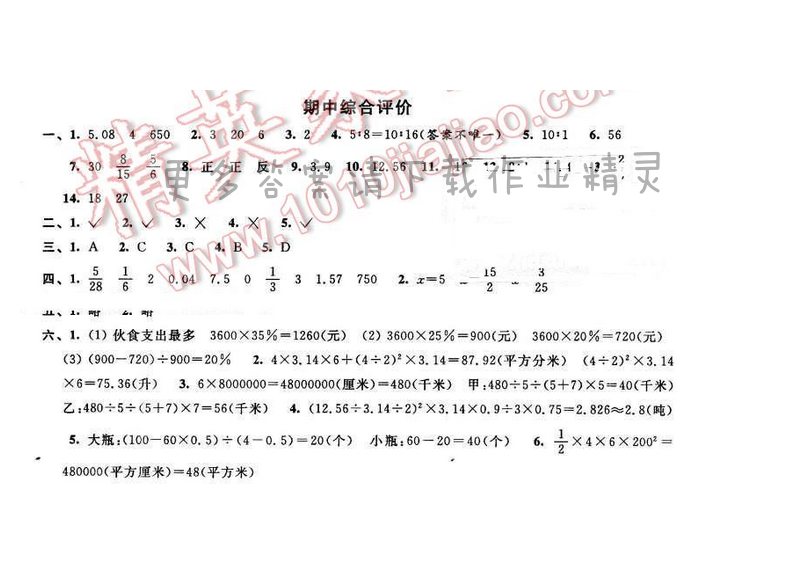 期中综合评价
一、1. 5.08 4 650 2. 3 20 6 3. 2 4. 5∶8=10∶16(答案不唯一) 5. 10∶1 6. 56
7. 30 8/15 5/6 8. 正 正 反 9. 3.9 10. 12.56 11.
14. 18 27
二、1. ✓ 2. ✓ 3. ✗ 4. ✗ 5. ✓
三、1. A 2. C 3. C 4. B 5. D
四、1. 5/28 1/6 2 0.04 7.5 0 1/3 3 1.57 750 2. x=5 15/2 3/25
五、1. 略 2. 略
六、1. (1) 伙食支出最多 3600×35%=1260(元) (2) 3600×25%=900(元) 3600×20%=720(元)
(3) (900-720)÷900=20% 2. 4×3.14×6+(4÷2)²×3.14=87.92(平方分米) (4÷2)²×3.14
×6=75.36(升) 3. 6×8000000=48000000(厘米)=480(千米) 甲:480÷5÷(5+7)×5=40(千米)
乙:480÷5÷(5+7)×7=56(千米) 4. (12.56÷3.14÷2)²×3.14×0.9÷3×0.75=2.826≈2.8(吨)
5. 大瓶:(100-60×0.5)÷(4-0.5)=20(个) 小瓶:60-20=40(个) 6. 1/2×4×6×200²=
480000(平方厘米)=48(平方米)
精英家
www.1010jiajiao.com
更多答案请下载作业精灵